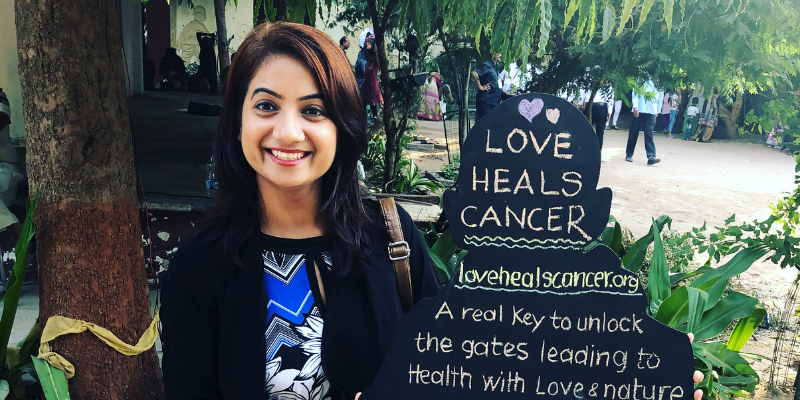 LOVE
HEALS
CANCER
lovehealscancer.org
A real Key to unlock
the gates leading to
Health with Love & nature